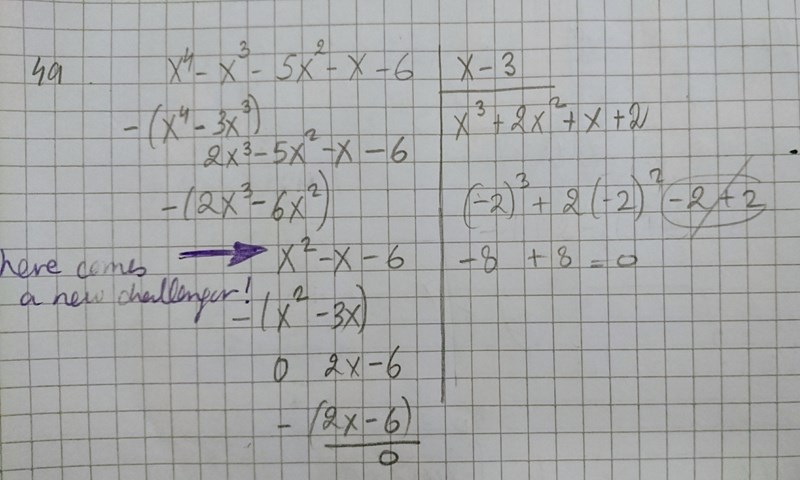 49 x⁴ - x³ - 5x² - x - 6 | x - 3
-(x⁴ - 3x³) x³ + 2x² + x + 2
2x³ - 5x² - x - 6
-(2x³ - 6x²) (-2)³ + 2(-2)² -2 + 2
here comes x² - x - 6 -8 + 8 = 0
a new challenger! -(x² - 3x)
0 2x - 6
-(2x - 6)
0